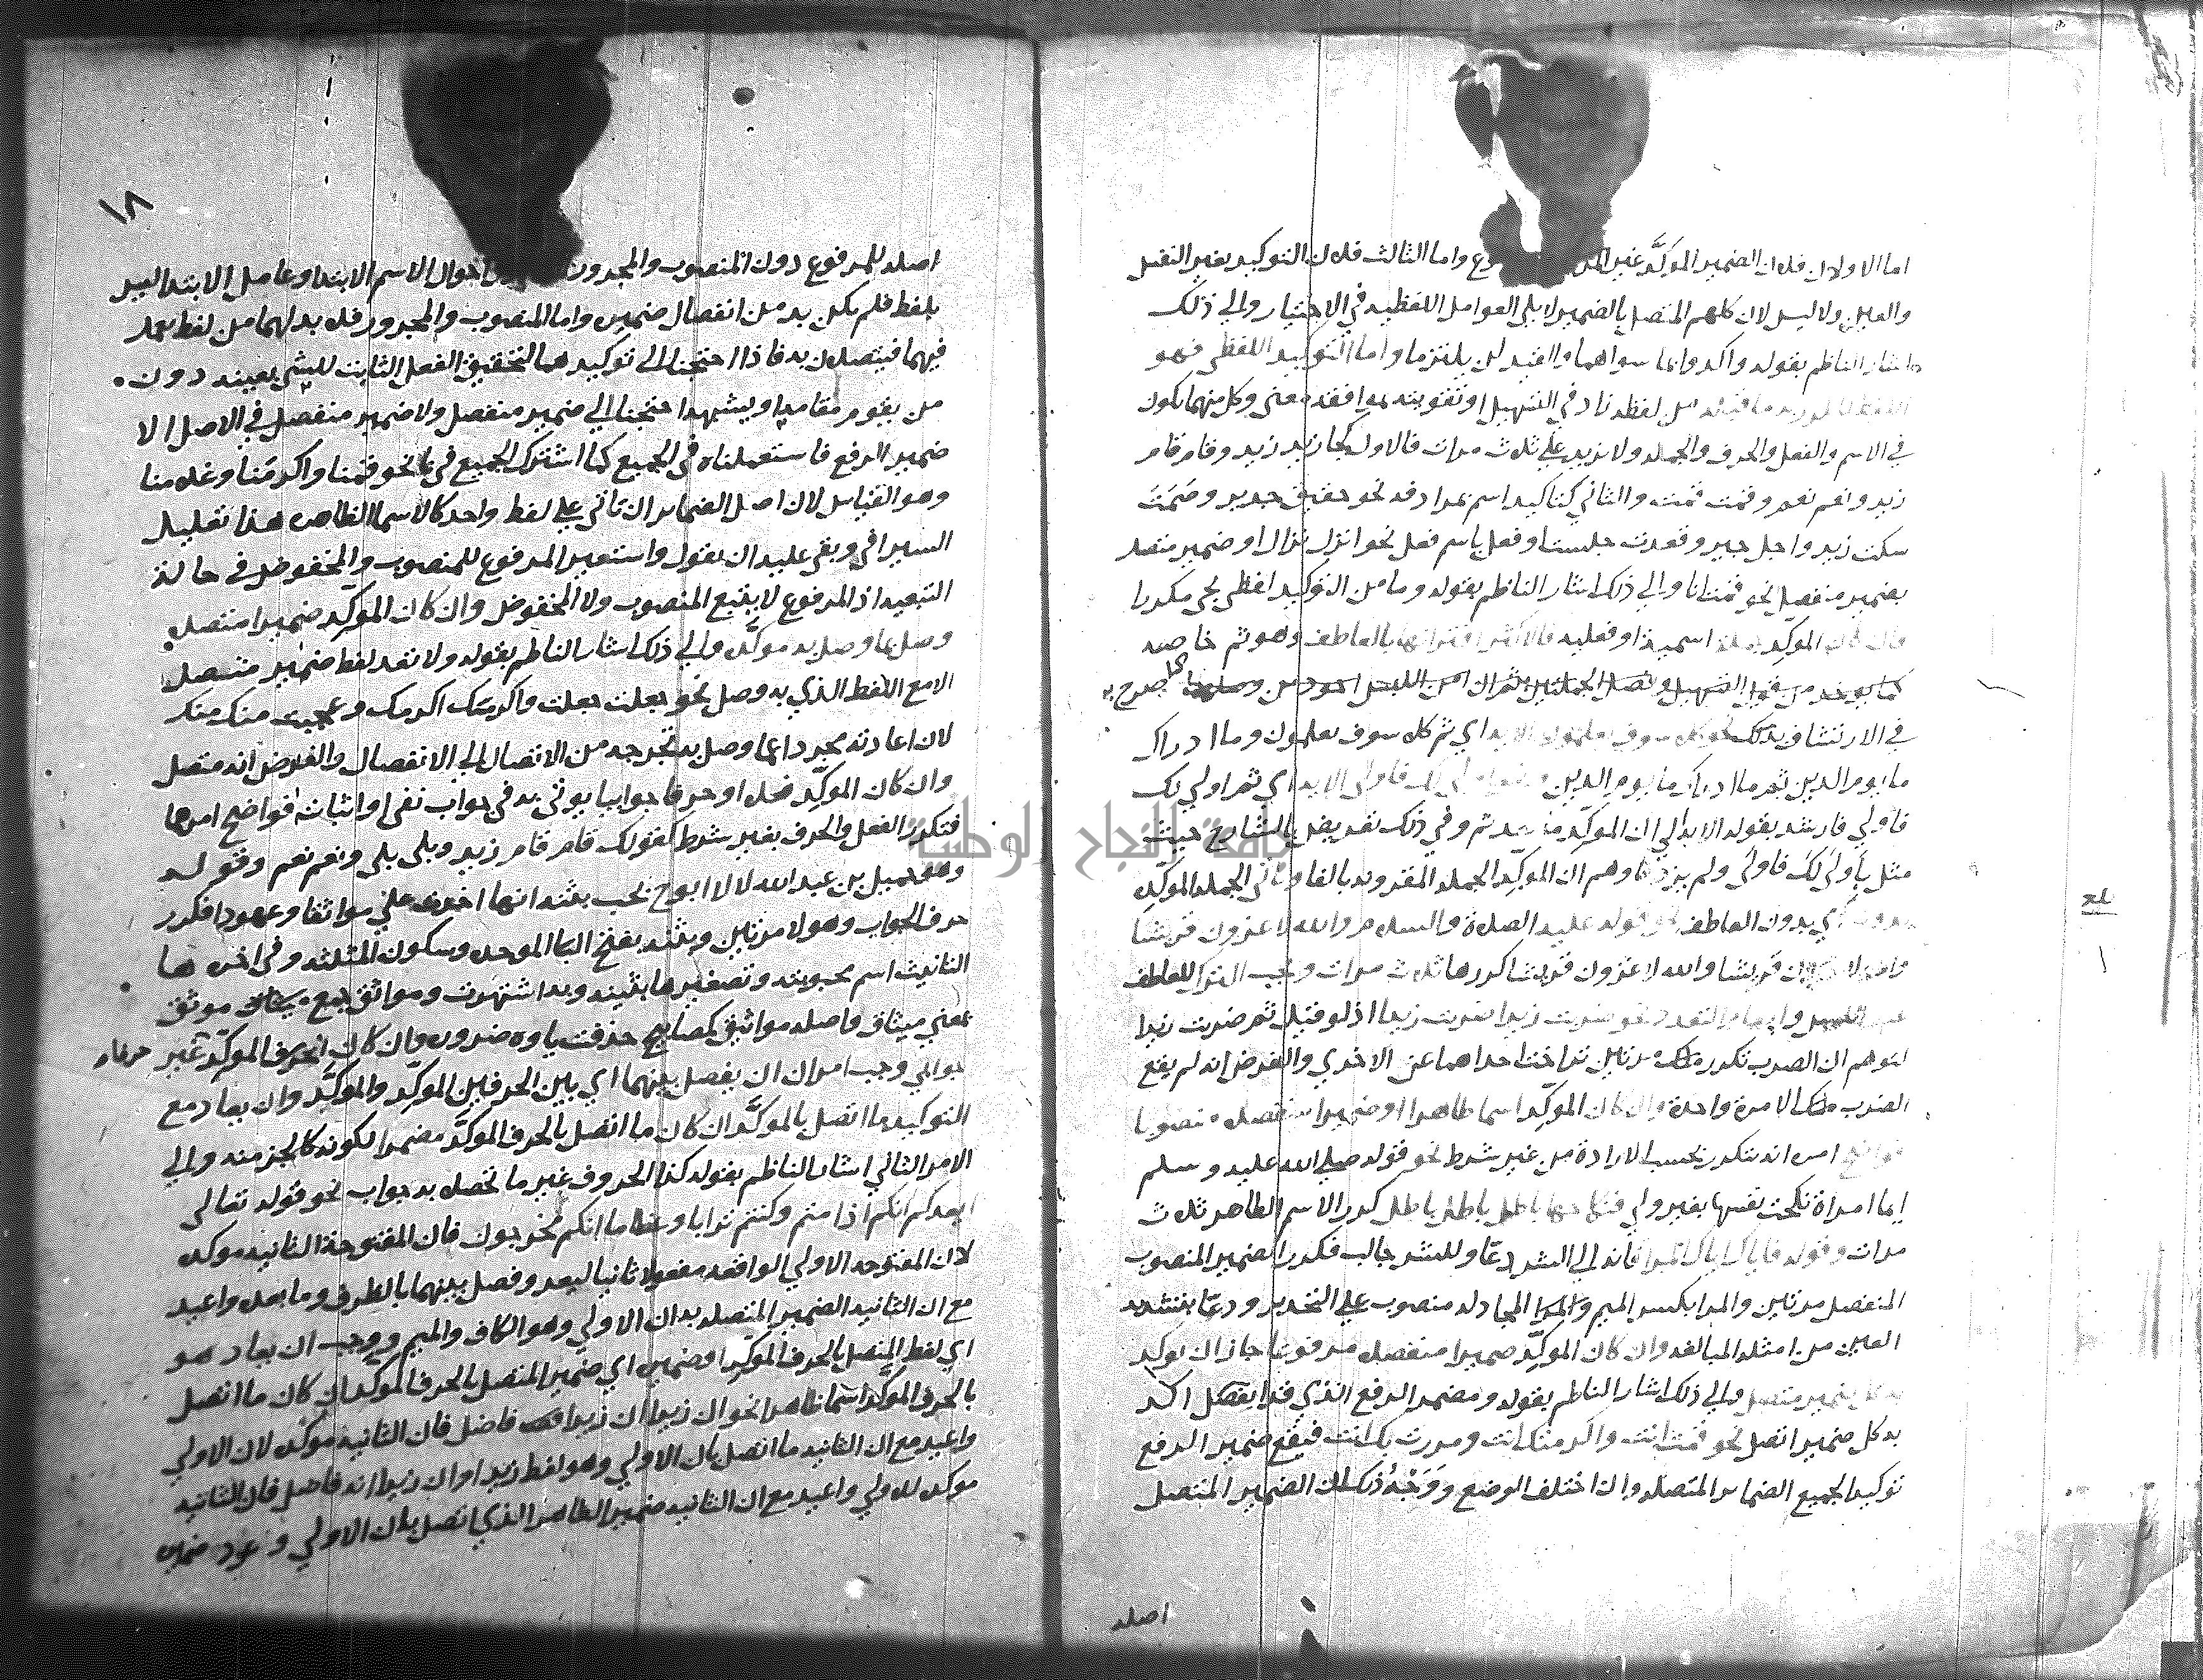 اما الاولان فلان الضمير الموكَّد غير المرفوع واما الثالث فلان التوكيد بغير النفس
والعين ولا لبس لان كلهم المتصل بالضمير لا يلي العوامل اللفظيه في الاختيار والي ذلك
اشار الناظم بقوله واكدوا بما سواهما والقيد لن يلتزما واما التوكيد اللفظي فهو
اللفظ المكرر به ما قبله من لفظه زاد في التسهيل او تقويته بموافقه معني وكل منهما يكون
في الاسم والفعل والحرف والجمله ولا يزيد علي ثلاث مرات فالاول كجا زيد زيد وقام قام
زيد ونعم نعم وقمت قمت والثاني كتاكيد اسم بمرادفه نحو حقيق جدير وصَمَتَ
سكت زيد واجل جير وقعدت جلست وفعل باسم فعل نحو انزل نزال او ضمير متصل
بضمير منفصل نحو قمت انا والي ذلك اشار الناظم بقوله وما من التوكيد لفظي يجي مكررا
فان كان الموكِد جملة اسمية او فعليه فالاكثر اقترانها بالعاطف وهو ثم خاصه
كما صرح به
في الارتشاف بذلك نحو كلا سوف يعلمون الايه اي ثم كلا سوف يعلمون وما ادراك
ما يوم الدين ثم ما ادراك ما يوم الدين ونحو اولي لك فاولي الايه اي ثم اولي لك
فاولي فارشد بقوله الايه الي ان الموكد فيه بعد ثم وفي ذلك تعريض بالشارح حيث
مثل بأولى لك فاولى ولم يزد فاوهم ان الموكِد الجمله المقرونه بالفا وتاتي الجمله الموكِّده
بدونه اي بدون العاطف نحو قوله عليه الصلاة والسلام والله لاغزون قريشا
والله لاغزون قريشا والله لاغزون قريشا كررها ثلاث مرات ويجب الترك للعاطف
عند اللبس وايهام التعدد نحو ضربت زيدا ضربت زيدا اذ لو قيل ثم ضربت زيدا
لتوهم ان الضرب تكرر منك مرتين تراخت احداهما عن الاخري والغرض انه لم يقع
الضرب منك الا مرة واحدة وان كان الموكِّد اسما ظاهرا او ضميرا منفصلا منصوبا
فواضح امره انه يتكرر بحسب الارادة من غير شرط نحو قوله صلي الله عليه وسلم
ايما امراة نكحت نفسها بغير ولي فنكاحها باطل باطل باطل كرر الاسم الظاهر ثلاث
مرات وقوله فاياك اياك المرا فانه الي الشر دعّا وللشر جالب فكرر الضمير المنصوب
المنفصل مرتين والمرا بكسر الميم والمرا المجادله منصوب علي التحذير ودعّا بتشديد
العين من امثلة المبالغه وان كان الموكِّد ضميرا منفصلا مرفوعا جاز ان يوكد
به كل ضمير متصل والي ذلك اشار الناظم بقوله ومضمر الرفع الذي قد انفصل اكد
به كل ضمير اتصل نحو قمت انت واكرمتك انت ومررت بك انت فيقع ضمير الرفع
توكيدا لجميع الضماير المتصله وان اختلف الوضع وَوَجْهُ ذلك ان الضمير المتصل
اصله
بلغ
١٨
اصله للمرفوع دون المنصوب والمجرور احوال الاسم الابتدا وعامل الابتدا ليس
بلفظ فلم يكن بد من انفصال ضميره واما المنصوب والمجرور فلا بد لهما من لفظ يعمل
فيهما فيتصلان به فاذا احتجنا الي توكيدهما لتحقيق الفعل الثابت للشي بعينه دون
من يقوم مقامه او يشبهه احتجنا الي ضمير منفصل ولا ضمير منفصل في الاصل الا
ضمير الرفع فاستعملناه في الجميع كما اشترك الجميع في نا نحو قمنا واكرمَنا وغلامنا
وهو القياس لان اصل الضماير ان تاتي علي لفظ واحد كالاسما الظاهره هذا تعليل
السيرافي وبقي عليه ان يقول واستعير المرفوع للمنصوب والمخفوض في حالة
التبعيه اذ المرفوع لا يتبع المنصوب ولا المخفوض وان كان الموكِّد ضميرا متصلا
وصل بما وصل به موكَّده والي ذلك اشار الناظم بقوله ولا تعد لفظ ضمير متصل
الا مع اللفظ الذي به وصل نحو جعلت جعلت واكرمك اكرمك وعجبت منك منك
لان اعادته مجردا عما وصل به تخرجه من الاتصال الي الانفصال والغرض انه متصل
وان كان الموكِّد فعلا او حرفا جوابيا يوتي به في جواب نفي او اثبات فواضح امرهما
فتكرر الفعل والحرف بغير شرط كقولك قام قام زيد وبلى بلى ونعم نعم وقوله
وهو جميل بن عبد الله لا لا ابوح بحب بثنه انها اخذت علي مواثقا وعهودا فكرر
حرف الجواب وهو لا مرتين وبثنه بفتح البا الموحده وسكون المثلثه وفي اخره ها
التانيث اسم محبوبته وتصغيرها بثينه وبه اشتهرت ومواثق جمع موثق
بمعني ميثاق واصله مواثيق كمصابيح حذفت ياوه ضروره وان كان الحرف الموكِّد غير
جوابي وجب امران ان يفصل بينهما اي بين الحرفين الموكِّد والموكَّد وان يعاد مع
التوكيد ما اتصل بالموكَّد ان كان ما اتصل بالحرف الموكَّد مضمرا لكونه كالجز منه والي
الامر الثاني اشار الناظم بقوله كذا الحروف غير ما تحصلا به جواب نحو قوله تعالى
ايعدكم انكم اذا متم وكنتم ترابا وعظاما انكم مخرجون فان المفتوحة الثانيه موكده
لان المفتوحه الاولي الواقعه مفعولا ثانيا ليعد وفصل بينهما بالظرف وما بعده واعيد
مع ان الثانيه الضمير المتصله به ان الاولي وهو الكاف والميم ووجب ان يعاد هو
اي لفظ المتصل بالحرف الموكَّد او ضميره اي ضمير المتصل بالحرف الموكد ان كان ما اتصل
بالحرف الموكَّد اسما ظاهرا نحو ان زيدا ان زيدا فاضل فان الثانيه موكده لان الاولي
واعيد مع ان الثانيه ما اتصل بان الاولي وهو لفظ زيد او ان زيدا انه فاضل فان الثانيه
موكده للاولي واعيد مع ان الثانيه ضمير الظاهر الذي اتصل بان الاولي وعود ضميره
جامعة النجاح الوطنية